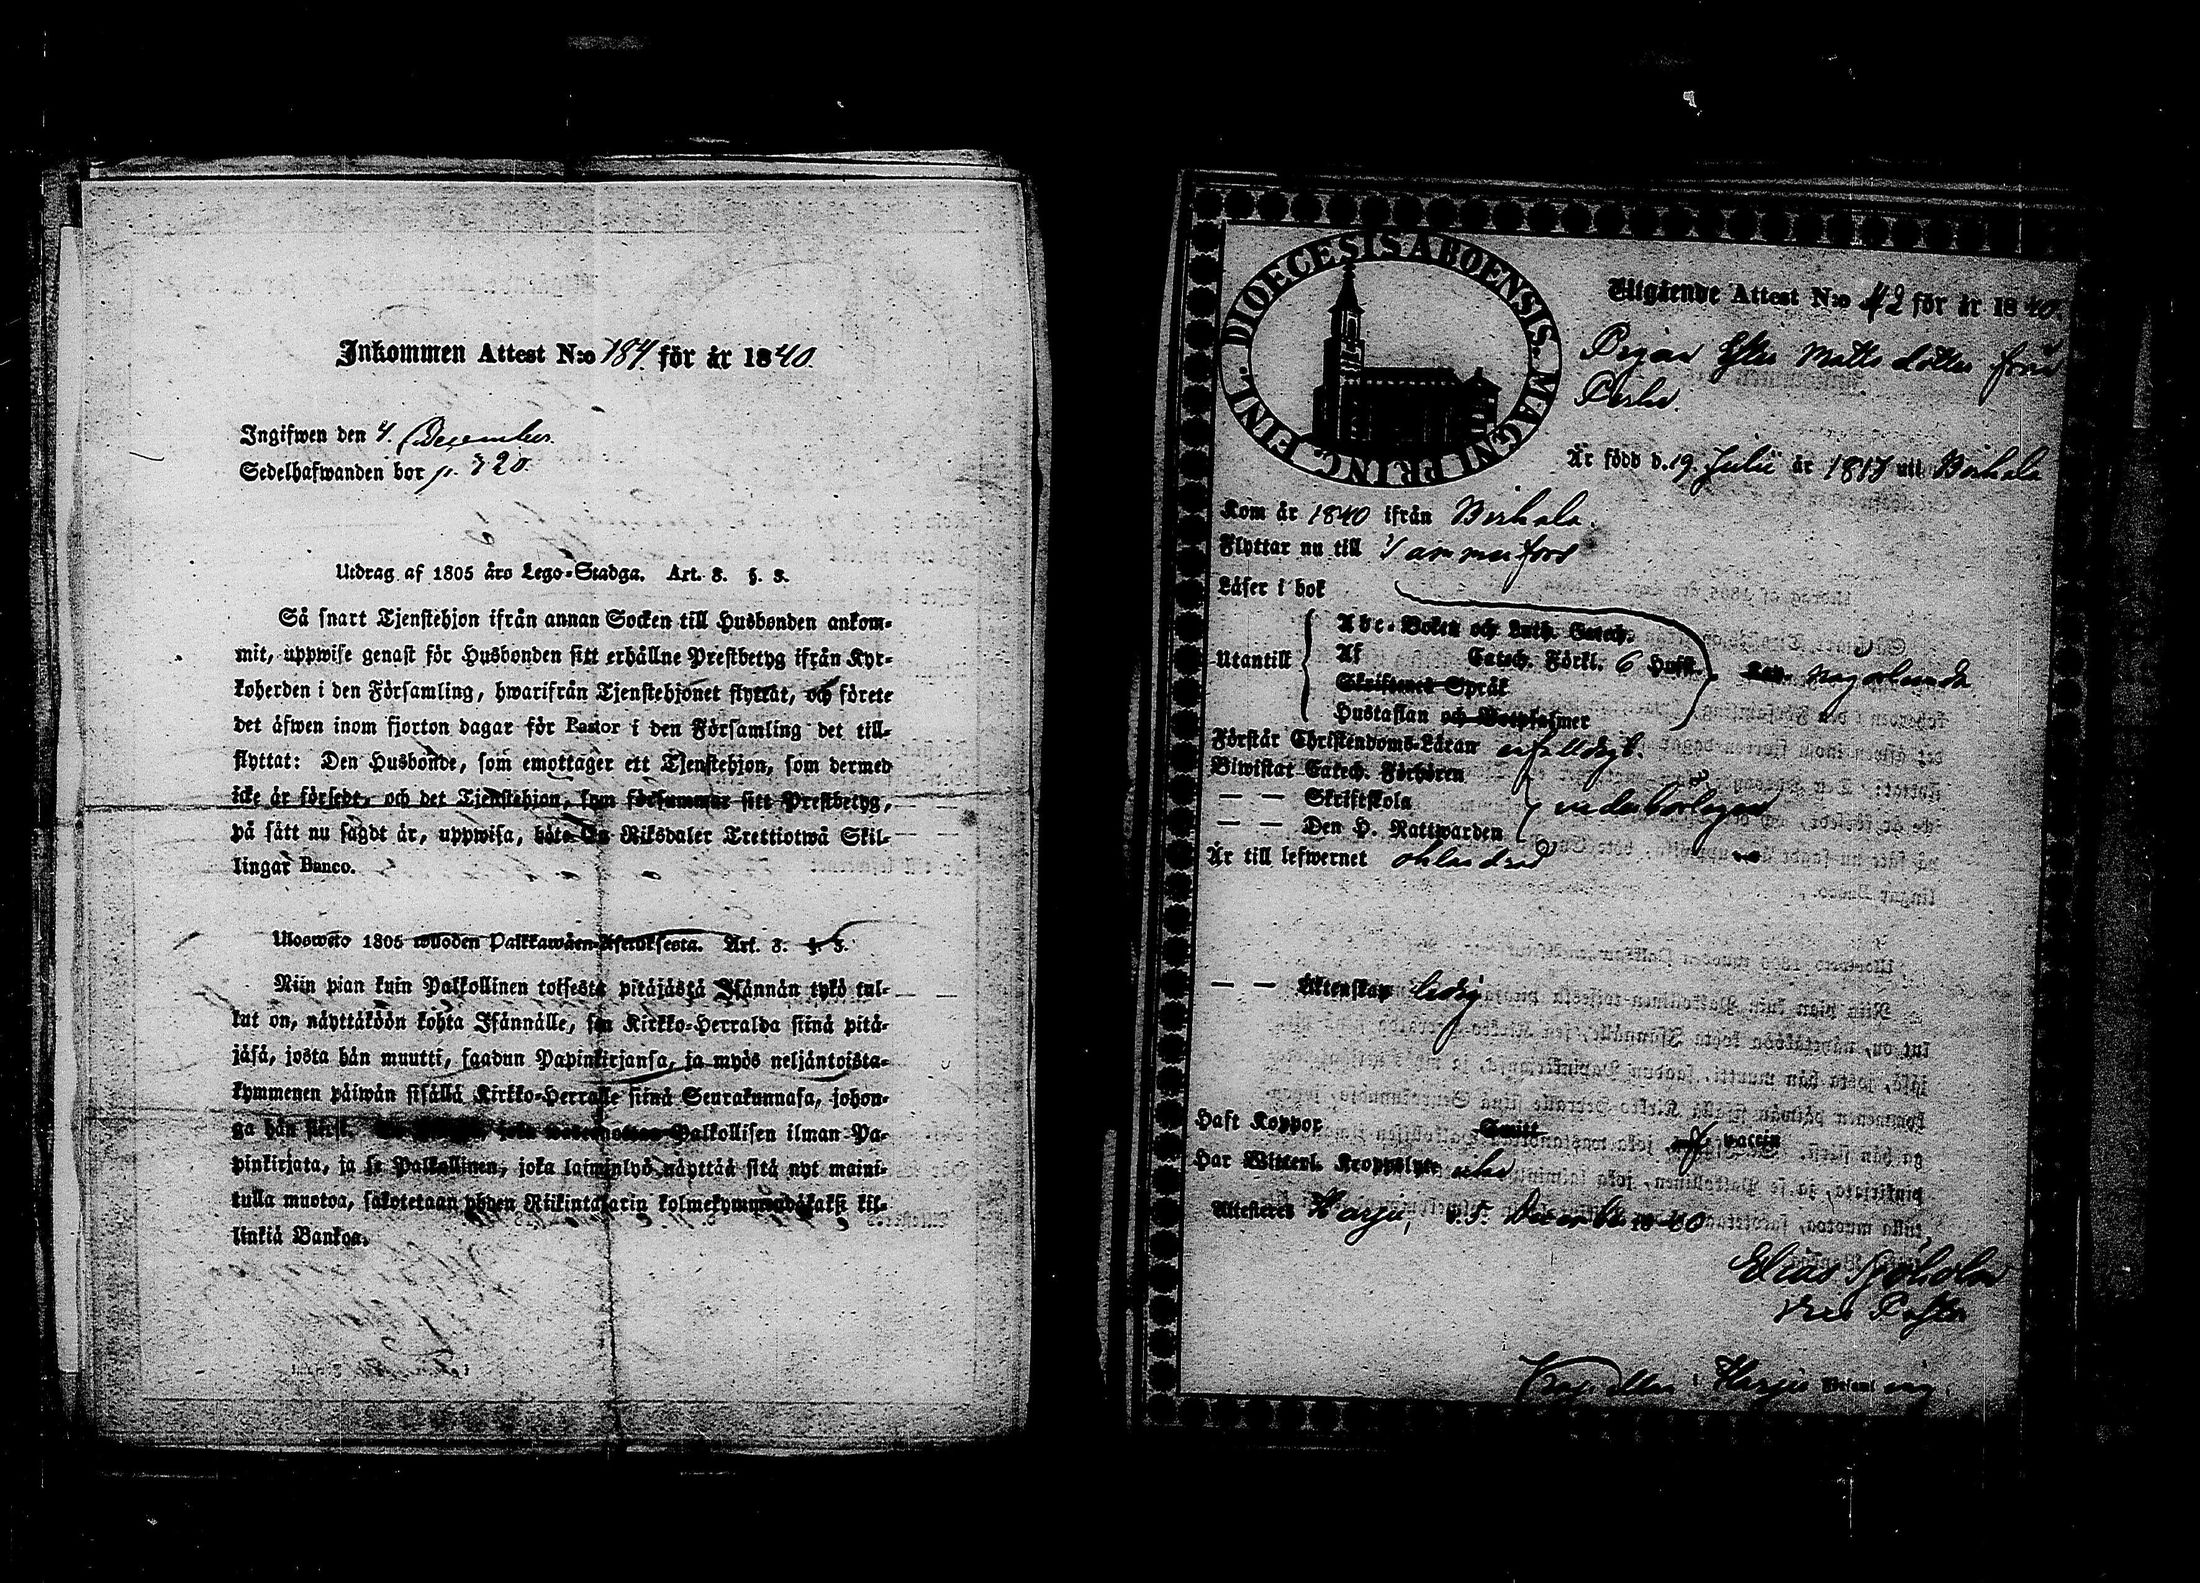 Inkommen Attest N:o 184 för år 1840.
Ingifwen den 4. December.
Sedelhafwanden bor p. 320.
Utdrag af 1805 års Lego-Stadga. Art. 3. §. 3.
Så snart Tjenstehjon ifrån annan Socken till Husbonden ankom-
mit, uppwise genast för Husbonden sitt erhållne Prestbetyg ifrån Kyr-
koherden i den Församling, hwarifrån Tjenstehjonet flyttat, och förete
det äfwen inom fjorton dagar för Pastor i den Församling det till-
flyttat: Den Husbonde, som emottager ett Tjenstehjon, som dermed
icke är försedt, och det Tjenstehjon, som försummar sitt Prestbetyg,
på sätt nu sagdt är, uppwisa, böte En Riksdaler Trettiotwå Skil-
lingar Banco.
Uloswеto 1805 wuoden Palkkawäen-Asetuksesta. Art. 3. §. 3.
Niin pian kuin Palkollinen toisesta pitäjästä Isännän tykö tul-
lut on, näyttäköön kohta Isännälle, sen Kirkko-Herralda siinä pitä-
jäsä, josta hän muutti, saadun Papinkirjansa, ja myös neljäntoista-
kymmenen päiwän sisällä Kirkko-Herralle siinä Seurakunnasa, johon-
ga hän siirsi. joka Palkollisen ilman Pa-
pinkirjata, ja se Palkollinen, joka laiminlyö näyttää sitä nyt maini-
tulla muotoa, sakotetaan yhden Riikintalarin kolmekymmendäkaksi kil-
linkiä Bankoa.
DIOECESIS ABOENSIS. MAGNI PRINC. FINL.
Utgående Attest N:o 42 för år 1840.
Pigan Matts dotter från
Är född d. 19 Julii år 1817 uti Birkala
Kom år 1840 ifrån Birkala.
Flyttar nu till Tammerfors
Läser i bok
Utantill
Abc-Boken och Luth. Catech.
Af Catech. Förkl. 6 Hufst.
Skriftenes Språk
Hustaflan och Botpsalmer
någorlunda
Förstår Christendoms-Läran enfalldigt.
Biwistat Catech. Förhören
— — Skriftskola
— — Den H. Nattwarden
vederbörligen
Är till lefwernet oklandrad
— — Äktenskap ledig
Haft Koppor vaccin
Har Witterl. Kroppslyte
Attesterar Harju, d. 5. December 1840
Elias Sjöholm
Vice Pastor
i Harju